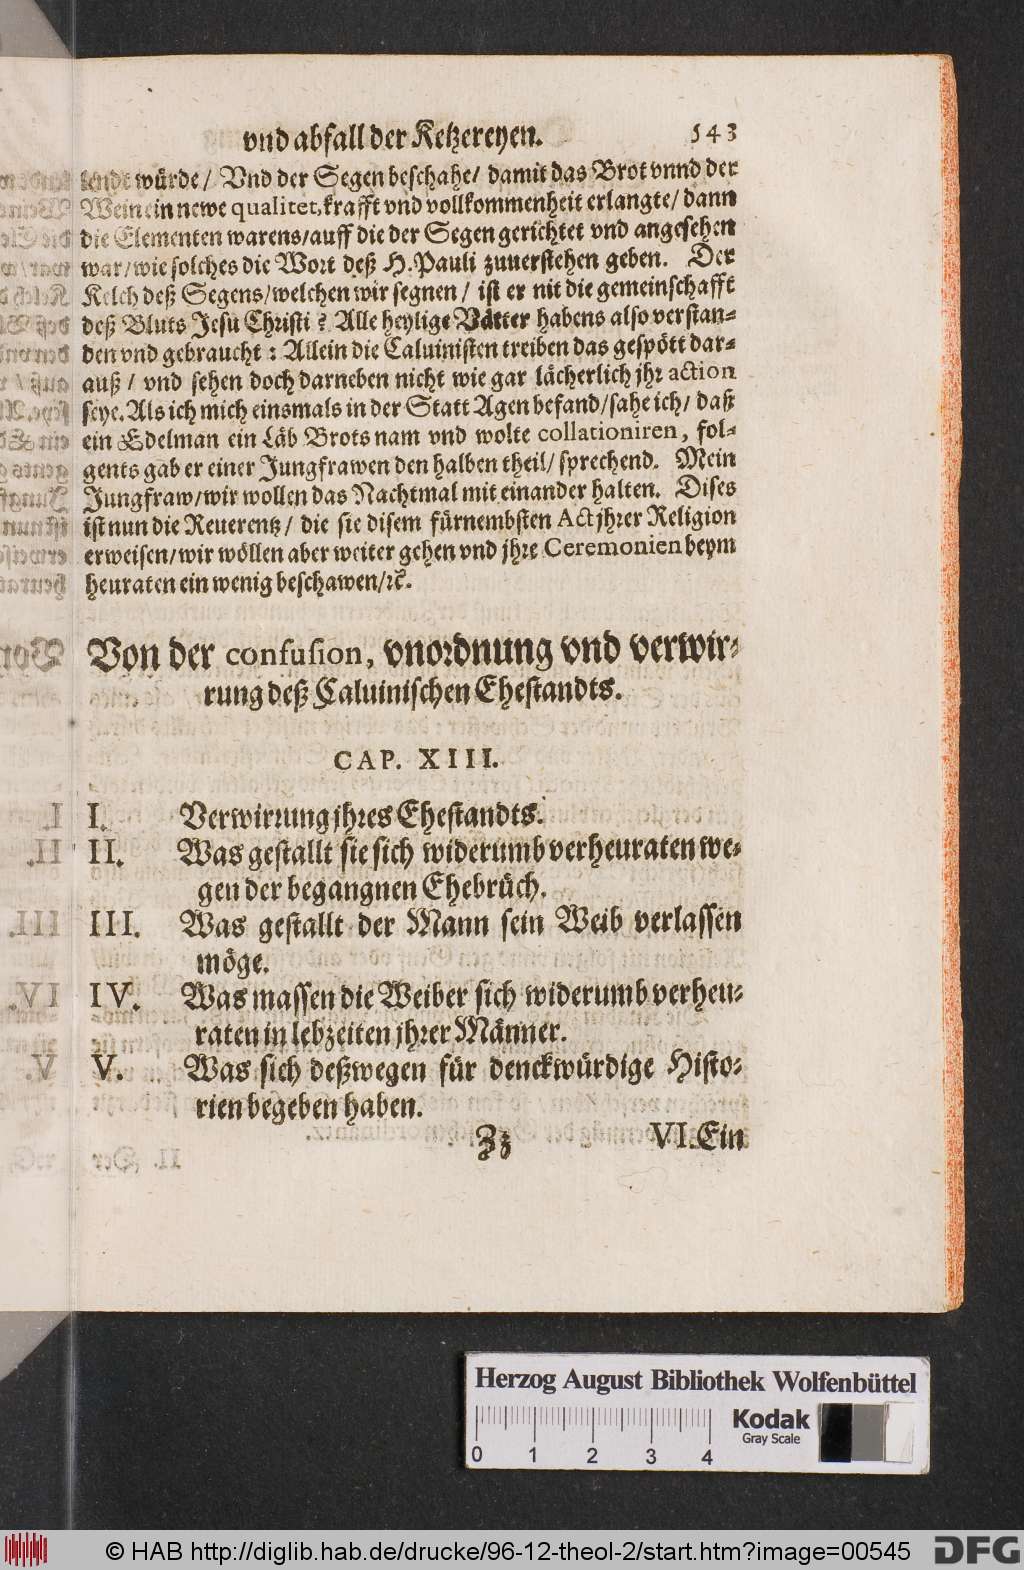 vnd abfall der Ketzereyen. 543
lendt würde / Vnd der Segen beschahe / damit das Brot vnnd der
Wein ein newe qualitet, krafft vnd vollkommenheit erlangte / dann
die Elementen warens / auff die der Segen gerichtet vnd angesehen
war / wie solches die Wort deß H. Pauli zuuerstehen geben. Der
Kelch deß Segens / welchen wir segnen / ist er nit die gemeinschafft
deß Bluts Jesu Christi? Alle heylige Vätter habens also verstan-
den vnd gebraucht: Allein die Caluinisten treiben das gespött dar-
auß / vnd sehen doch darneben nicht wie gar lächerlich jhr action
seye. Als ich mich einsmals in der Statt Agen befand / sahe ich / daß
ein Edelman ein Läb Brots nam vnd wolte collationiren, fol-
gents gab er einer Jungfrawen den halben theil / sprechend. Mein
Jungfraw / wir wollen das Nachtmal mit einander halten. Dises
ist nun die Reuerentz / die sie disem fürnembsten Act jhrer Religion
erweisen / wir wöllen aber weiter gehen vnd jhre Ceremonien beym
heuraten ein wenig beschawen / ꝛc.
Von der confusion, vnordnung vnd verwir-
rung deß Caluinischen Ehestandts.
CAP. XIII.
I. Verwirrung jhres Ehestandts.
II. Was gestallt sie sich widerumb verheuraten we-
gen der begangnen Ehebrüch.
III. Was gestallt der Mann sein Weib verlassen
möge.
IV. Was massen die Weiber sich widerumb verheu-
raten in lebzeiten jhrer Männer.
V. Was sich deßwegen für denckwürdige Histo-
rien begeben haben.
Zz VI. Ein
Herzog August Bibliothek Wolfenbüttel
Kodak
Gray Scale
0 1 2 3 4
© HAB http://diglib.hab.de/drucke/96-12-theol-2/start.htm?image=00545
DFG